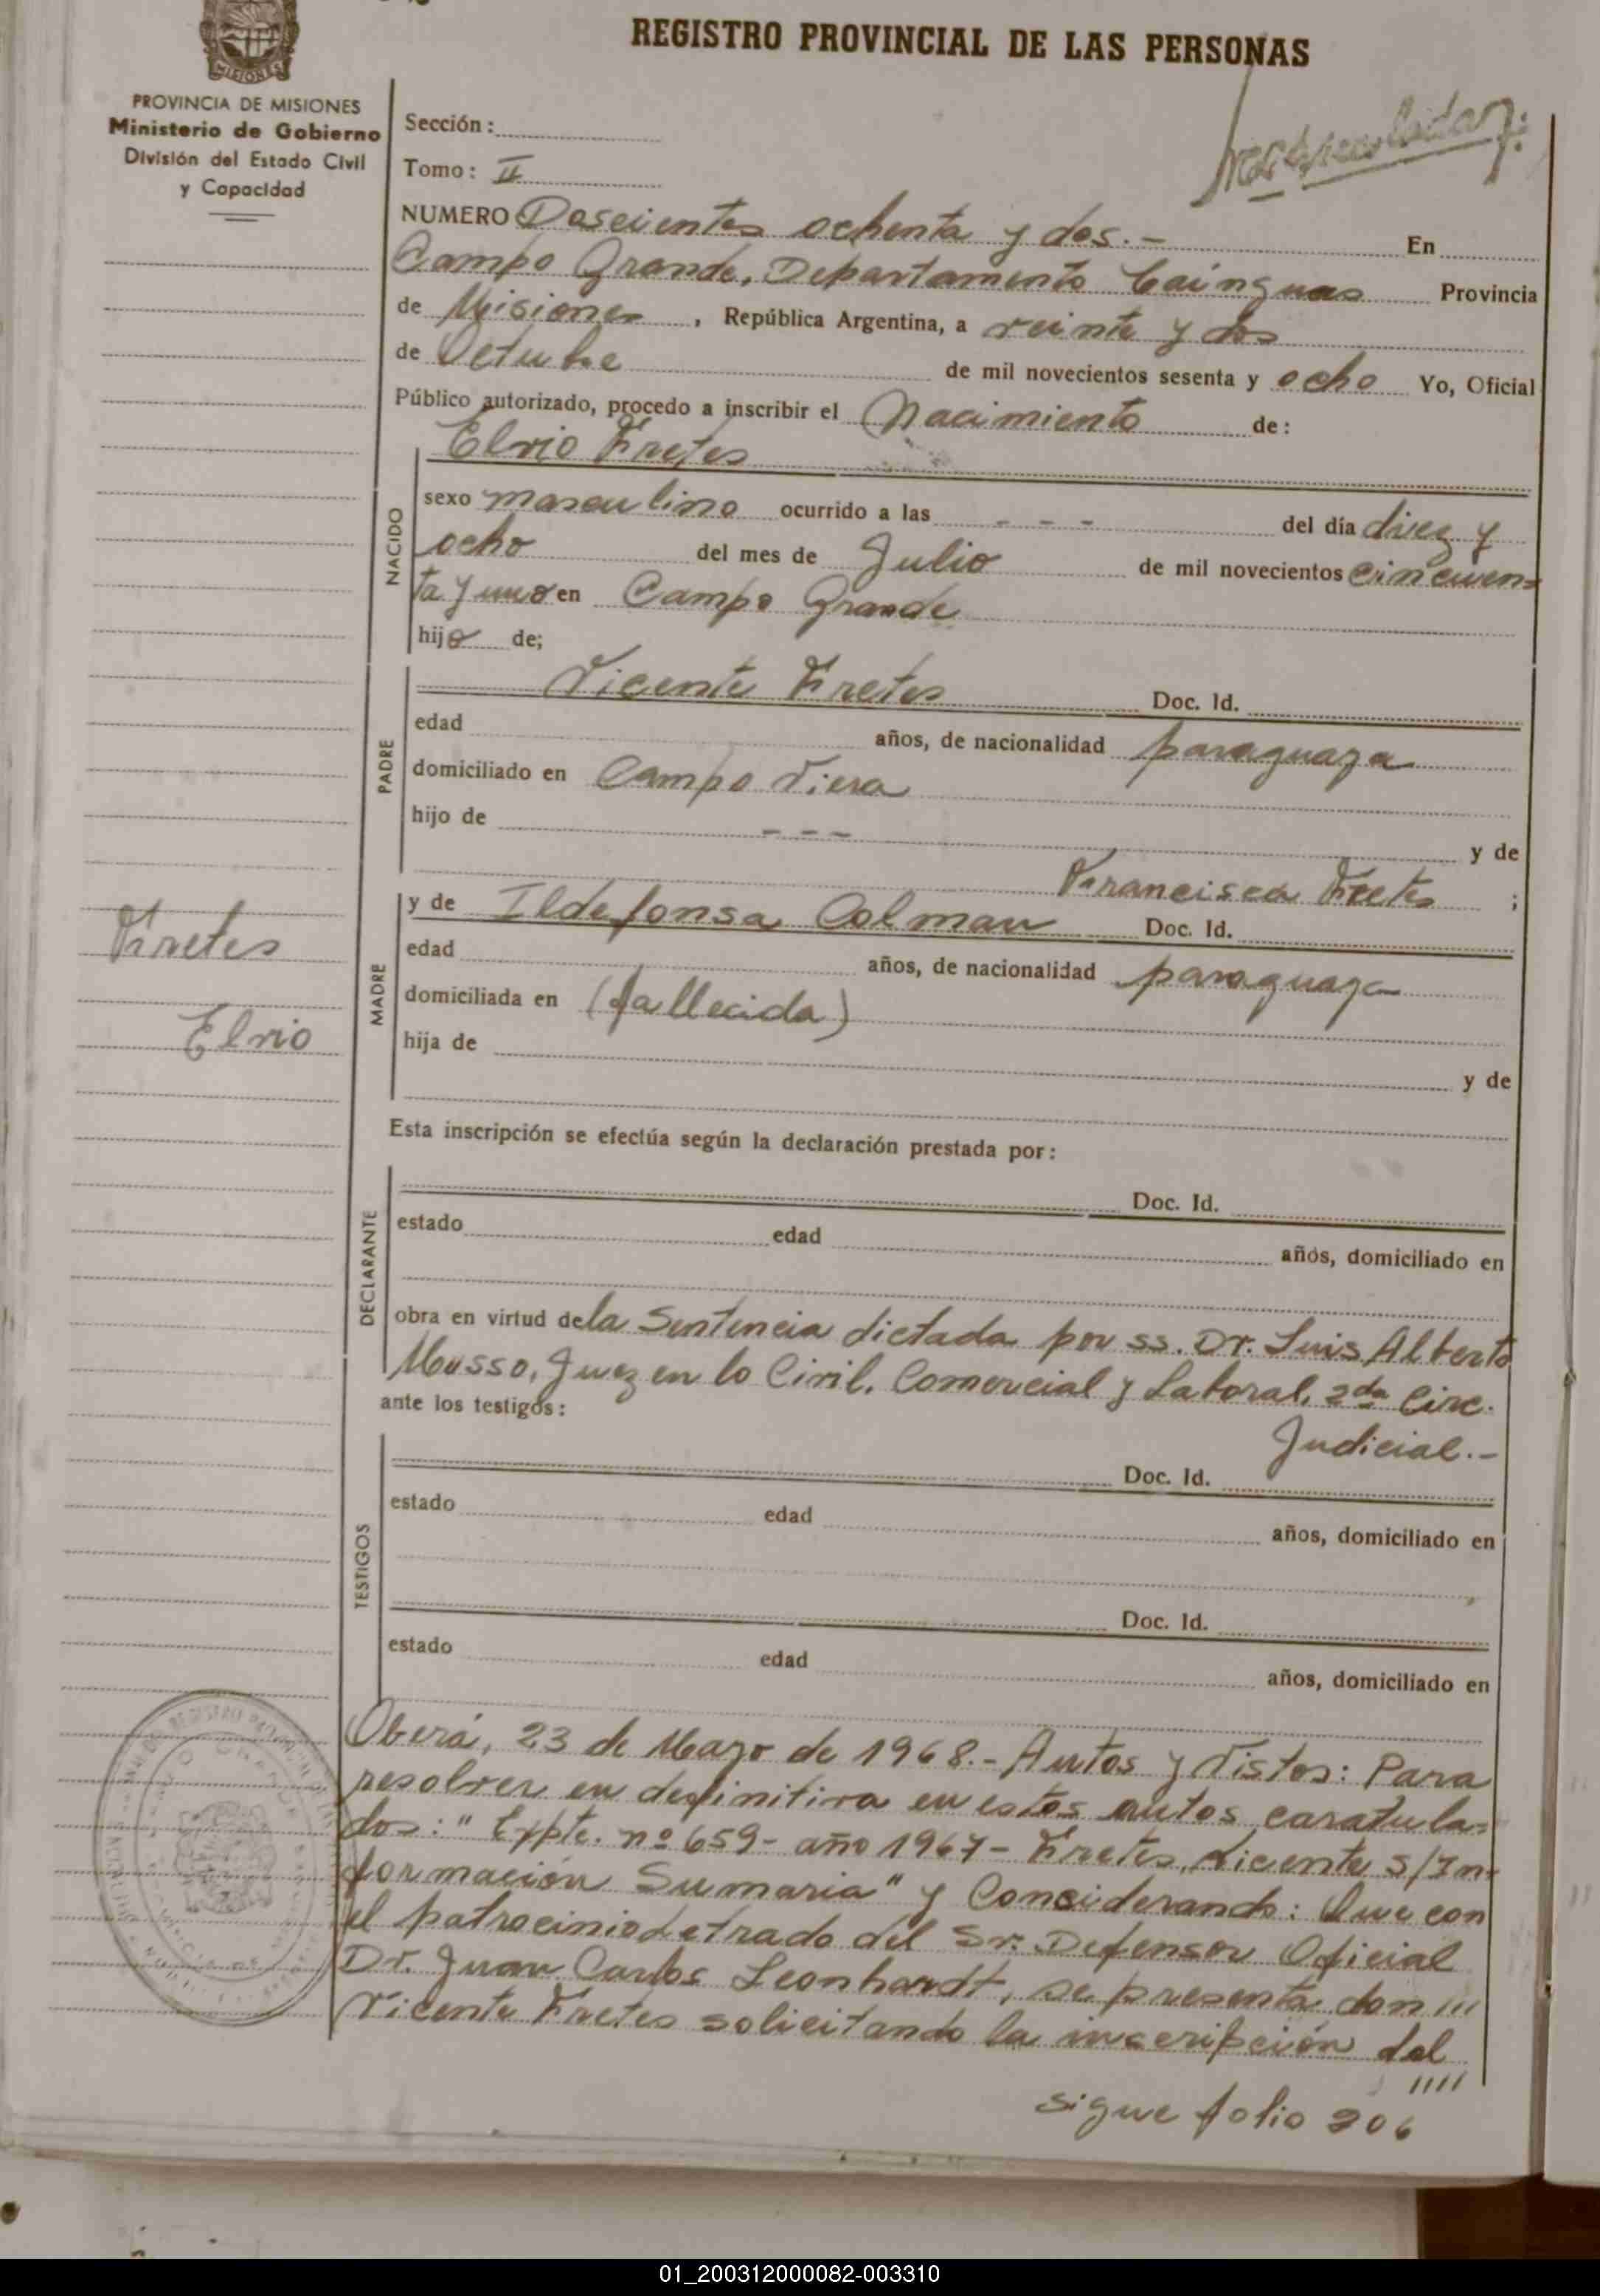 REGISTRO PROVINCIAL DE LAS PERSONAS
MISIONES
PROVINCIA DE MISIONES
Ministerio de Gobierno
División del Estado Civil
y Capacidad
Sección:
Tomo: II
NUMERO Doscientos ochenta y dos.- En
Campo Grande, Departamento Cainguas Provincia
de Misiones, República Argentina, a veinte y dos
de Octubre de mil novecientos sesenta y ocho Yo, Oficial
Público autorizado, procedo a inscribir el Nacimiento de:
Elvio Fretes
NACIDO
sexo masculino ocurrido a las - - - del día diez y
ocho del mes de Julio de mil novecientos cincuen=
ta y uno en Campo Grande
hijo de;
PADRE
Vicente Fretes Doc. Id.
edad años, de nacionalidad paraguaya
domiciliado en Campo Viera
hijo de - - - y de
Francisca Fretes ;
MADRE
y de Ildefonsa Colman Doc. Id.
edad años, de nacionalidad paraguaya
domiciliada en (fallecida)
hija de y de
Fretes
Elvio
Esta inscripción se efectúa según la declaración prestada por:
DECLARANTE
Doc. Id.
estado edad años, domiciliado en
obra en virtud de la Sentencia dictada por ss. Dr. Luis Alberto
Musso, Juez en lo Civil, Comercial y Laboral, 2da Circ.
Judicial.-
ante los testigos:
TESTIGOS
Doc. Id.
estado edad años, domiciliado en
Doc. Id.
estado edad años, domiciliado en
Oberá, 23 de Mayo de 1968.- Autos y Vistos: Para
resolver en definitiva en estos autos caratula=
dos: "Expte. nº 659- año 1967- Fretes, Vicente s/In-
formación Sumaria" y Conciderando: Que con
el patrocinio Letrado del Sr. Defensor Oficial
Dr. Juan Carlos Leonhardt, se presenta don ///
Vicente Fretes solicitando la inscripción del
////
sigue folio 306
01_200312000082-003310